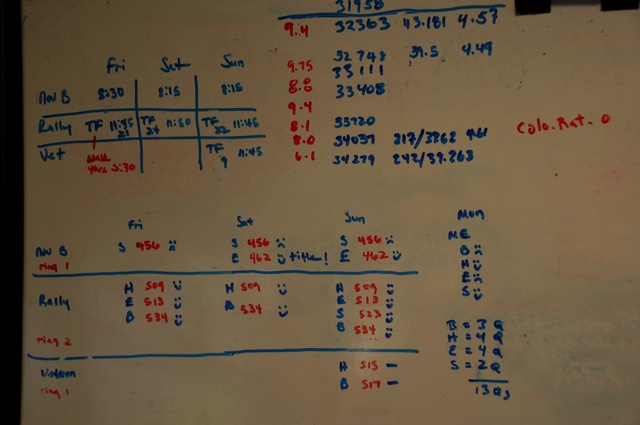 31958
9.4 32363 43.181 4.57
9.75 32748 39.5 4.49
33111
8.8 33408
9.4
8.1 33720
8.0 34037
6.1 34279
Colo. Rat. 0
Fri Sat Sun
Nov B 8:30 8:15 8:15
Rally TF 11:45 TF 11:50 TF 11:45
21 24 22
Vet TF 11:45
9
Fri Sat Sun Mon
Nov B S 456 S 456 S 456 ME
Ring 1 E 462 title! E 462 B
H
E
S
Rally H 509 H 509 H 509
E 513 B 534 E 513
B 534 S 523
B 534
Ring 2
B = 3 Q
H = 4 Q
E = 4 Q
S = 2 Q
13 Qs
H 515 -
Ring 1 B 517 -